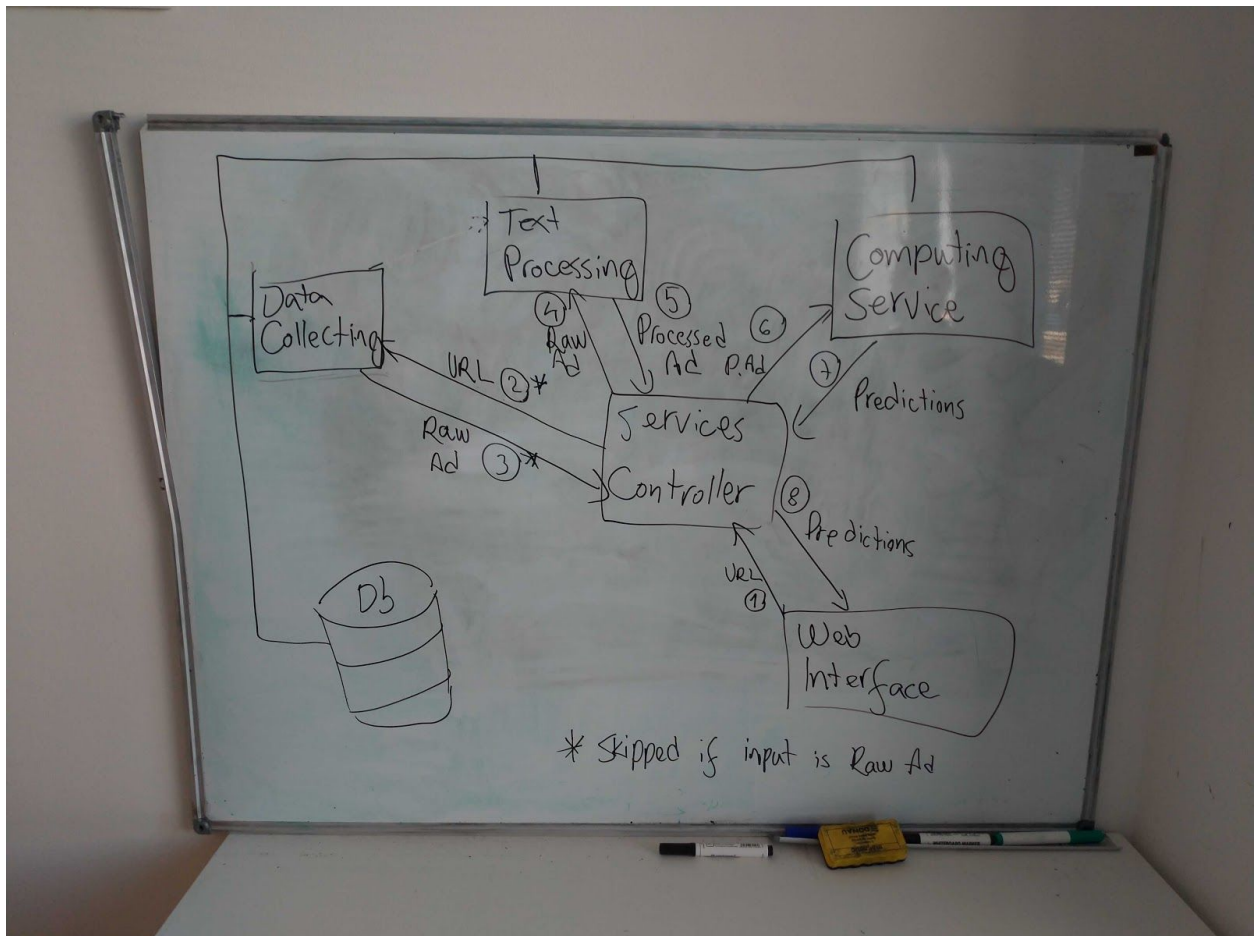 Text
Processing
Computing
Service
Data
Collecting
4
Raw
Ad
5
Processed
Ad
6
P.Ad
7
Predictions
URL 2*
Raw
Ad 3*
Services
Controller
8
Predictions
URL
1
Db
Web
Interface
* Skipped if input is Raw Ad